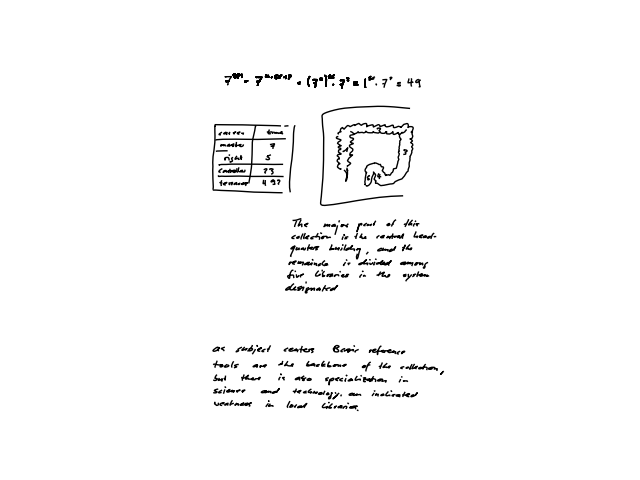 = 49
career time
master 7
right 5
controller 23
terrace 492
The major part of this
collection is the central head-
quarters building, and the
remainde is divided among
five libraries in the system
designated
as subject centers Basic reference
tools are the backbone of the collection,
but there is also specialization in
science and technology. an indicated
weakness in local libraries.